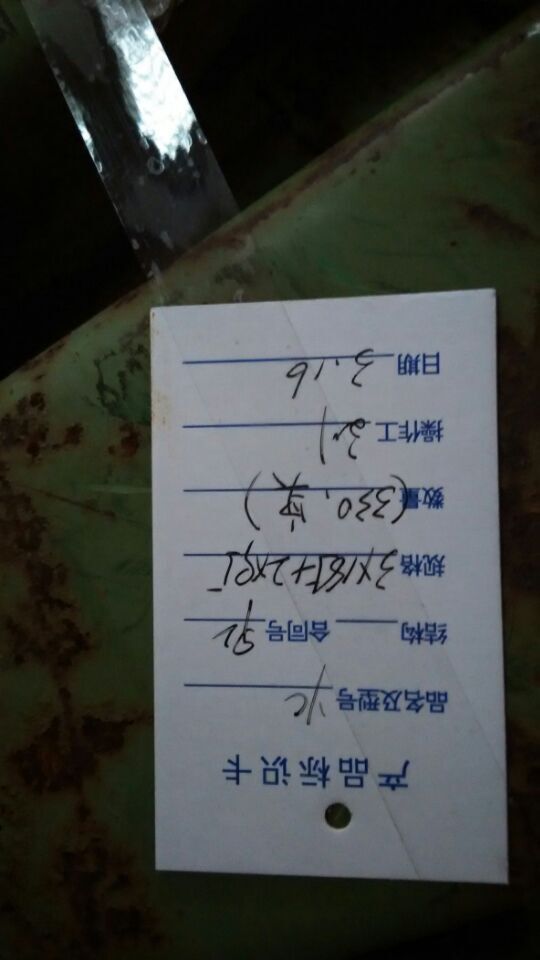 产品标识卡
品名及型号 YC
结构 合同号 52
规格 3×185+2×95
数量 (330.
操作工
日期 3.16